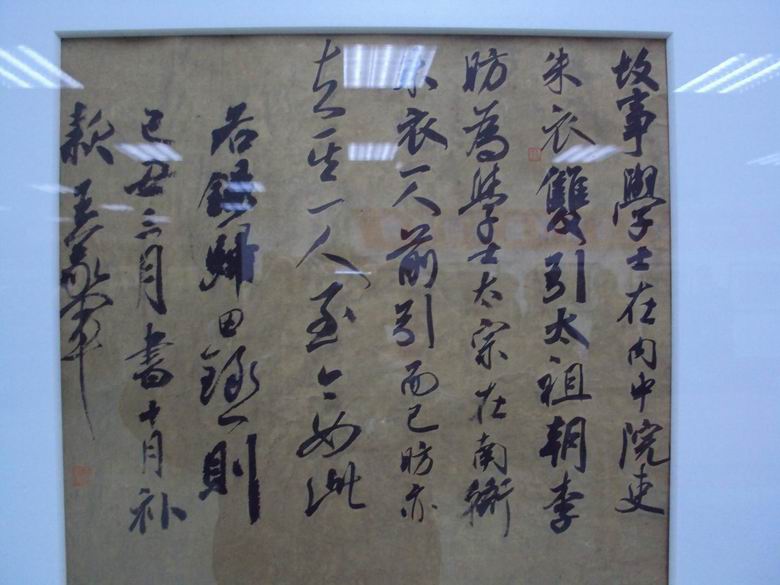 故事學士在内中院吏
朱衣雙引太祖朝李
昉為學士太宗在南衙
朱衣一人前引而已昉亦
去其一人至今如此
右録歸田録一則
己丑三月書十月补
款